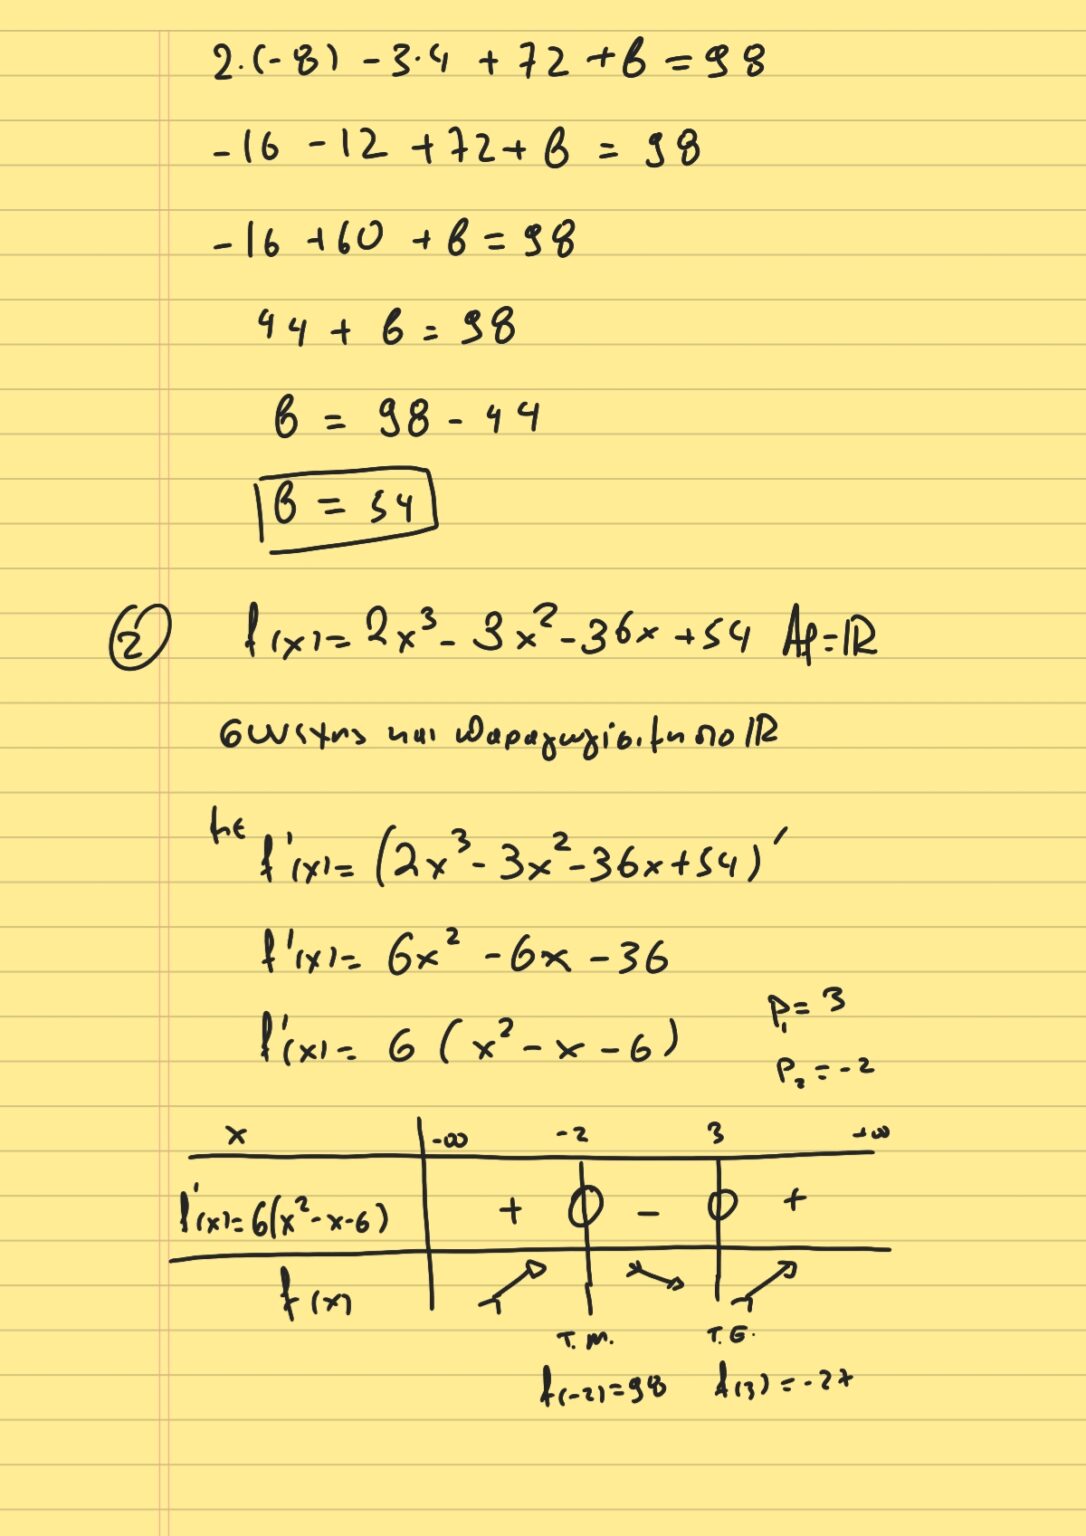 2·(-8) - 3·4 + 72 + β = 98
-16 - 12 + 72 + β = 98
-16 + 60 + β = 98
44 + β = 98
β = 98 - 44
β = 54
② f(x) = 2x³ - 3x² - 36x + 54 Af = ℝ
συνεχής και παραγωγίσιμη στο ℝ
με f'(x) = (2x³ - 3x² - 36x + 54)'
f'(x) = 6x² - 6x - 36
f'(x) = 6(x² - x - 6)
ρ₁ = 3
ρ₂ = -2
x -∞ -2 3 +∞
f'(x) = 6(x² - x - 6) + 0 - 0 +
f(x) ↗ ↘ ↗
T.M. T.E.
f(-2) = 98 f(3) = -27